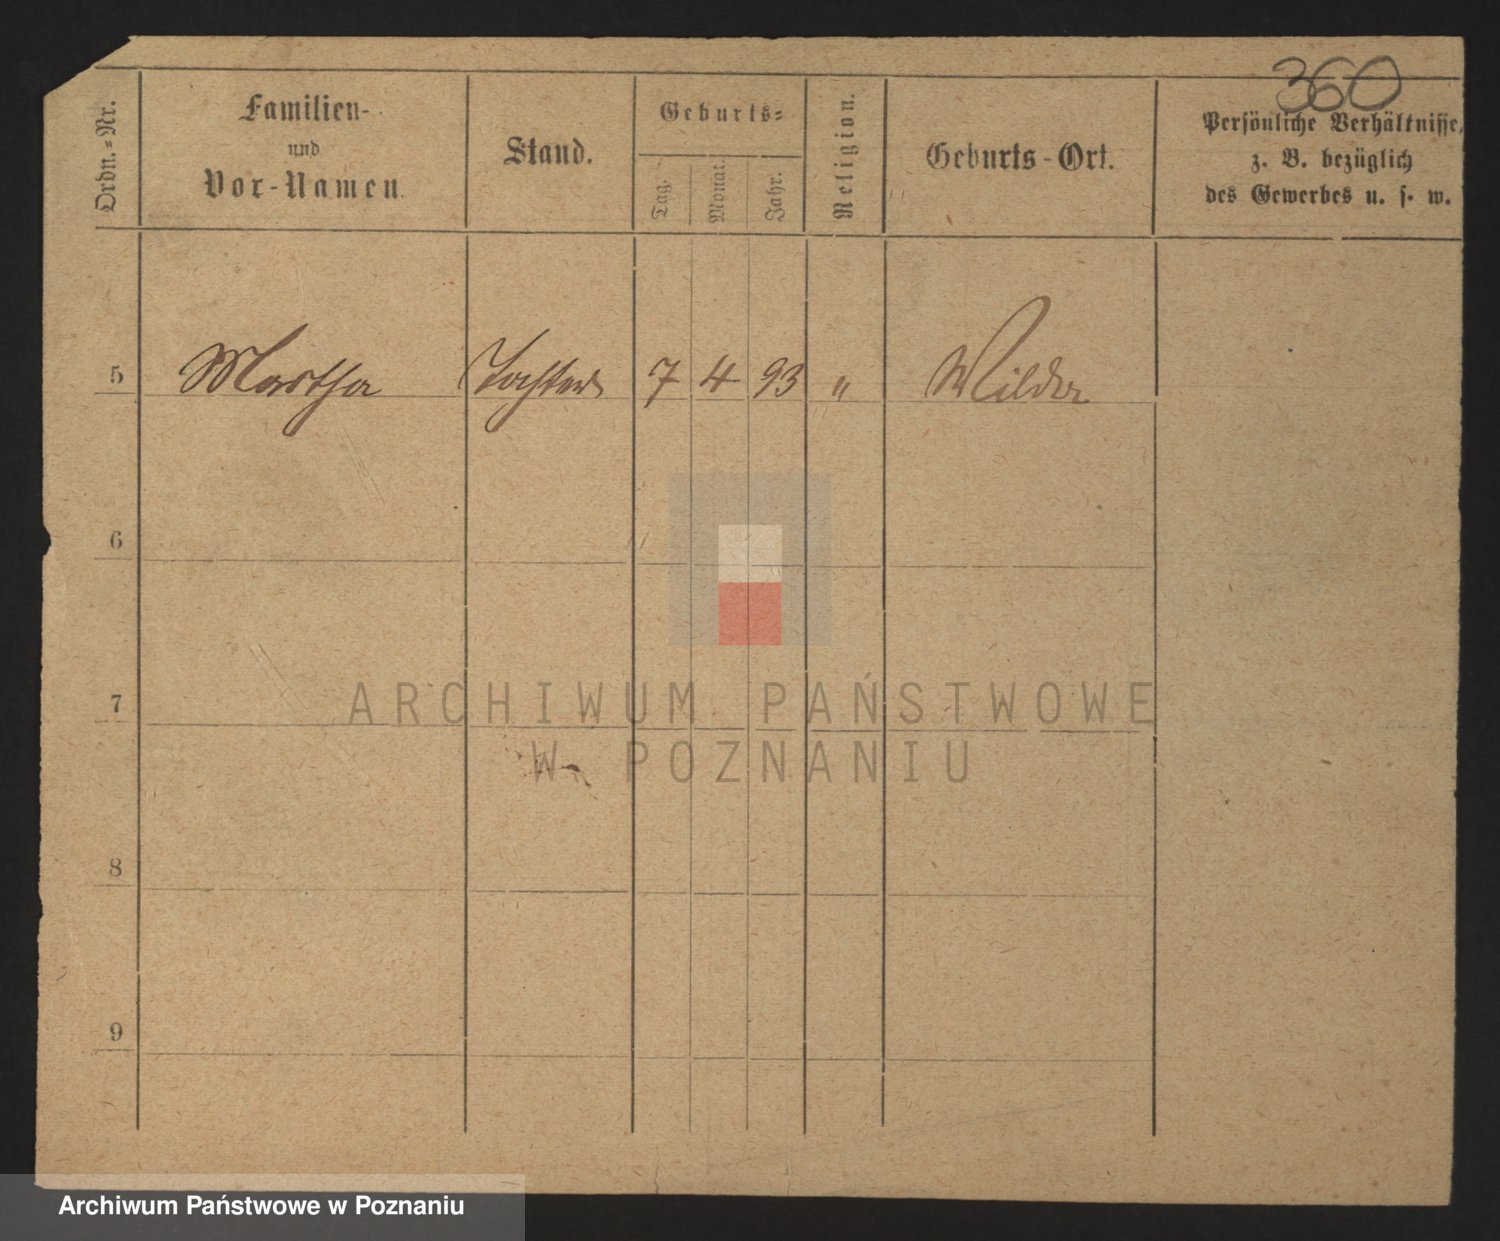 360
Ordn.-Nr.
Familien-
und
Vor-Namen.
Stand.
Geburts-
Tag.
Monat.
Jahr.
Religion.
Geburts-Ort.
Persönliche Verhältnisse,
z. B. bezüglich
des Gewerbes u. s. w.
5 Martha Tochter 7 4 93 " Wilda
6
7
8
9
ARCHIWUM PAŃSTWOWE
W POZNANIU
Archiwum Państwowe w Poznaniu